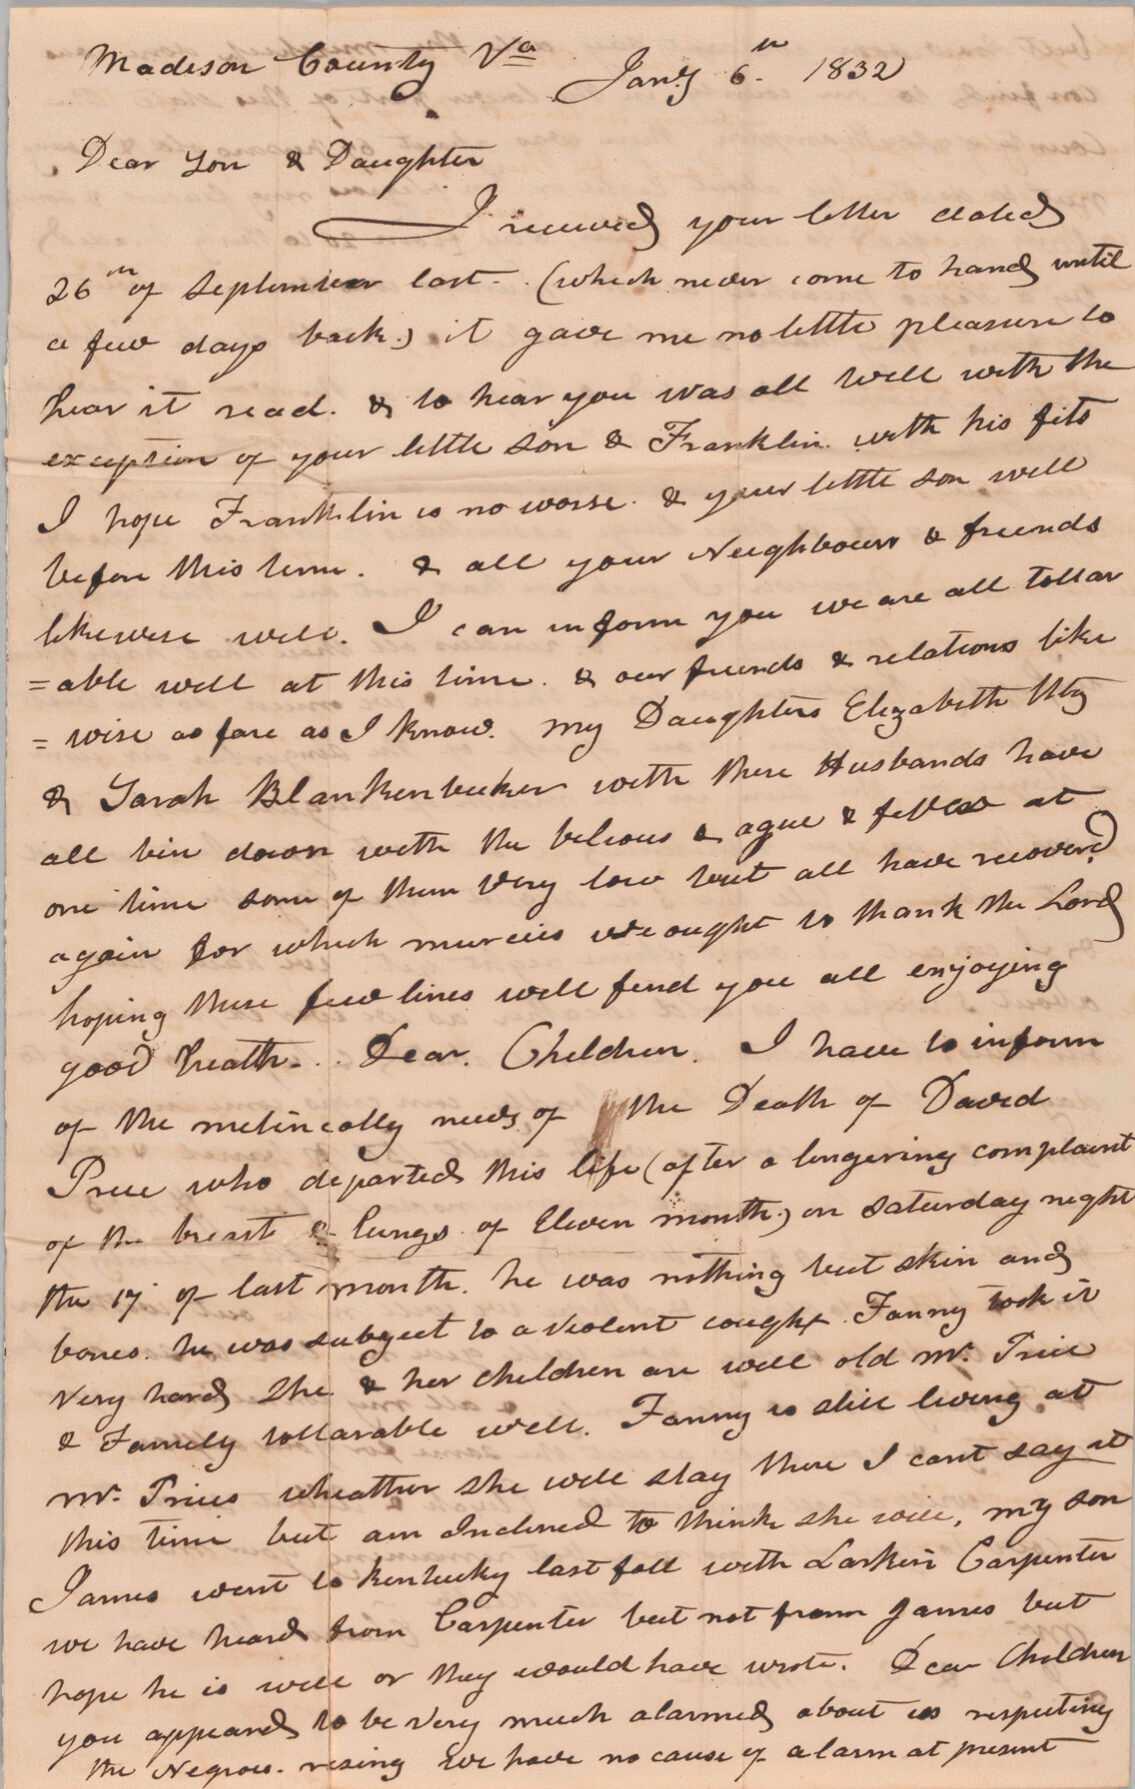 Madison County Va Jany 6th 1832
Dear Son & Daughter
I received your letter dated
26th of September last. (which never come to hand until
a few days back.) it gave me no little pleasure to
hear it read. & to hear you was all well with the
exception of your little son & Franklin with his fits
I hope Franklin is no worse. & your little son well
before this time. & all your Neighbours & friends
likewise well. I can inform you we are all tollar
=able well at this time. & our friends & relations like
=wise as fare as I know. my Daughters Elizabeth Utz
& Sarah Blankenbeker with there Husbands have
all bin down with the belious & ague & fever at
one time some of them very low but all have recovered
again for which murcies we ought to thank the Lord
hoping these few lines will find you all enjoying
good heath. Dear Children. I have to inform
of the melincolly news of the Death of David
Price who departed this life (after a lingering complaint
of the breast & lungs of Eleven month) on Saturday night
the 17 of last month. he was nothing but skin and
bones. he was subject to a violent cough. Fanny took it
very hard she & her children are well old Mr. Price
& Family tollarable well. Fanny is still living at
Mr. Prices wheather she will stay there I cant say at
this time but am Inclined to think she will, my son
James went to Kentucky last fall with Larkin Carpenter
we have heard from Carpenter but not from James but
hope he is well or they would have wrote. Dear Children
you appeard to be very much alarmed about us respecting
the Negroes rising we have no cause of alarm at present